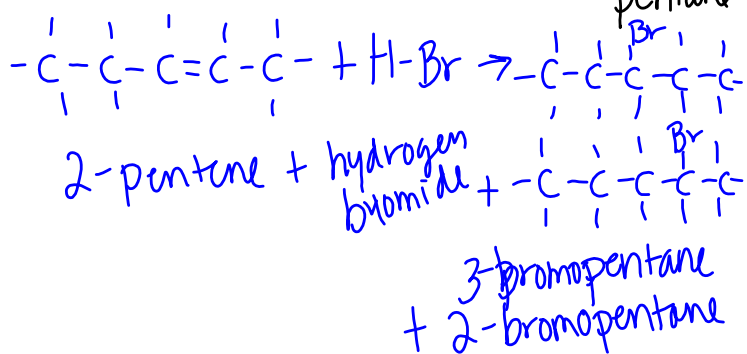 pentane
- C - C - C = C - C - + H-Br → - C - C - C - C - C -
Br
2-pentene + hydrogen bromide + - C - C - C - C - C -
Br
3-bromopentane
+ 2-bromopentane